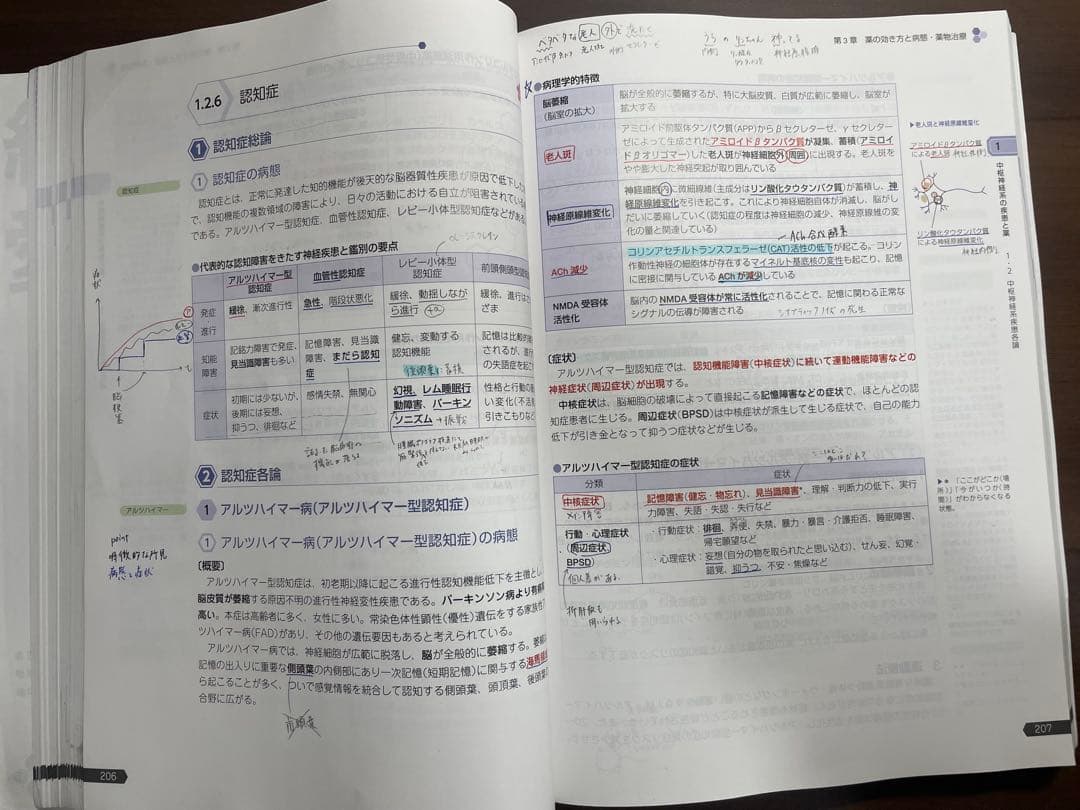 1.2.6 認知症
1 認知症総論
認知症
1 認知症の病態
認知症とは、正常に発達した知的機能が後天的な脳器質性疾患が原因で低下した
で、認知機能の複数領域の障害により、日々の活動における自立が阻害されている
である。アルツハイマー型認知症、血管性認知症、レビー小体型認知症などがある
●代表的な認知障害をきたす神経疾患と鑑別の要点
アルツハイマー型認知症 血管性認知症 レビー小体型認知症 前頭側頭型認知
発症 進行 緩徐、漸次進行性 急性、階段状悪化 緩徐、動揺しながら進行 緩徐、進行は
ざま
知能障害 記銘力障害で発症、見当識障害も多い 記憶障害、見当識障害、まだら認知症 健忘、変動する認知機能 記憶は比較的
されるが、進行
の失語症を起
症状 初期には少ないが、後期には妄想、抑うつ、徘徊など 感情失禁、無関心 幻視、レム睡眠行動障害、パーキンソニズム 性格と行動の
い変化(不活
引きこもりな
2 認知症各論
アルツハイマー
1 アルツハイマー病(アルツハイマー型認知症)
1 アルツハイマー病(アルツハイマー型認知症)の病態
point
特徴的な所見
病態と症状
〔概要〕
アルツハイマー型認知症は、初老期以降に起こる進行性認知機能低下を主徴とし、
脳皮質が萎縮する原因不明の進行性神経変性疾患である。パーキンソン病より有病率
高い。本症は高齢者に多く、女性に多い。常染色体性顕性(優性)遺伝をする家族性ア
ツハイマー病(FAD)があり、その他の遺伝要因もあると考えられている。
アルツハイマー病では、神経細胞が広範に脱落し、脳が全般的に萎縮する。萎縮
記憶の出入りに重要な側頭葉の内側部にあり一次記憶(短期記憶)に関与する海馬
ら起こることが多く、ついで感覚情報を統合して認知する側頭葉、頭頂葉、後頭葉
合野に広がる。
206
第3章 薬の効き方と病態・薬物治療
●病理学的特徴
脳萎縮(脳室の拡大) 脳が全般的に萎縮するが、特に大脳皮質、白質が広範に萎縮し、脳室が
拡大する
老人斑 アミロイド前駆体タンパク質(APP)からβセクレターゼ、γセクレター
ゼによって生成されたアミロイドβタンパク質が凝集、蓄積(アミロイ
ドβオリゴマー)した老人斑が神経細胞外周囲に出現する。老人斑を
やや膨大した神経突起が取り囲んでいる
神経原線維変化 神経細胞内に微細線維(主成分はリン酸化タウタンパク質)が蓄積し、神
経原線維変化を引き起こす。これにより神経細胞自体が消滅し、脳がし
だいに萎縮していく(認知症の程度は神経細胞の減少、神経原線維の変
化の量と関連している)
ACh合成酵素
ACh減少 コリンアセチルトランスフェラーゼ(CAT)活性の低下が起こる。コリン
作動性神経の細胞体が存在するマイネルト基底核の変性も起こり、記憶
に密接に関与しているAChが減少している
NMDA受容体活性化 脳内のNMDA受容体が常に活性化されることで、記憶に関わる正常な
シグナルの伝導が障害される
〔症状〕
アルツハイマー型認知症では、認知機能障害(中核症状)に続いて運動機能障害などの
神経症状(周辺症状)が出現する。
中核症状は、脳細胞の破壊によって直接起こる記憶障害などの症状で、ほとんどの認
知症患者に生じる。周辺症状(BPSD)は中核症状が派生して生じる症状で、自己の能力
低下が引き金となって抑うつ症状などが生じる。
●アルツハイマー型認知症の症状
分類 症状
中核症状 記憶障害(健忘・物忘れ)、見当識障害*、理解・判断力の低下、実行
力障害、失語・失認・失行など
行動・心理症状(周辺症状、BPSD) ・行動症状:徘徊、弄便、失禁、暴力・暴言・介護拒否、睡眠障害、
帰宅願望など
・心理症状:妄想(自分の物を取られたと思い込む)、せん妄、幻覚・
錯覚、抑うつ、不安・焦燥など
個人差がある
▶老人斑と神経原線維変化
アミロイドβタンパク質
による老人斑
リン酸化タウタンパク質
による神経原線維変化
▶*「ここがどこか(場
所)」「今がいつか(時
間)」がわからなくなる
状態。
1
中枢神経系の疾患と薬
1・2 中枢神経系疾患各論
207